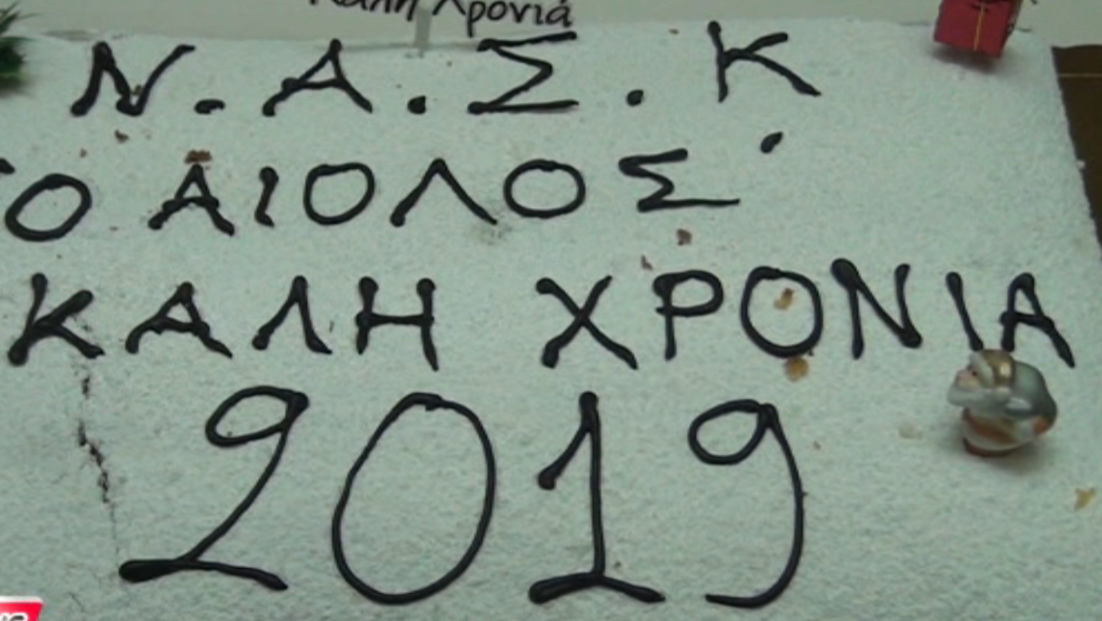 Καλή Χρονιά
Ν.Α.Σ.Κ
"Ο ΑΙΟΛΟΣ"
ΚΑΛΗ ΧΡΟΝΙΑ
2019